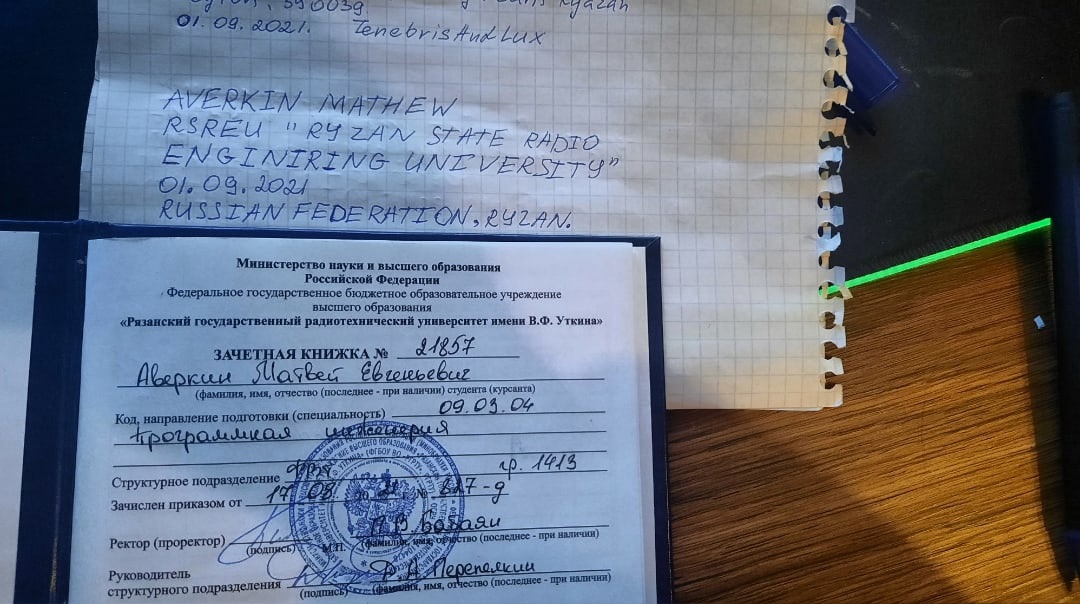 390039
Ryazan
01.09.2021. TenebrisAndLux
AVERKIN MATHEW
RSREU "RYZAN STATE RADIO
ENGINIRING UNIVERSITY"
01.09.2021
RUSSIAN FEDERATION, RYZAN.
Министерство науки и высшего образования
Российской Федерации
Федеральное государственное бюджетное образовательное учреждение
высшего образования
«Рязанский государственный радиотехнический университет имени В.Ф. Уткина»
ЗАЧЕТНАЯ КНИЖКА № 21857
Аверкин Матвей Евгеньевич
(фамилия, имя, отчество (последнее - при наличии) студента (курсанта)
Код, направление подготовки (специальность) 09.03.04
Программная инженерия
Структурное подразделение ФВТ гр. 1413
Зачислен приказом от 17.08 № 217-д
Ректор (проректор) М.П.
(подпись) (фамилия, имя, отчество (последнее - при наличии)
Руководитель
структурного подразделения Д.А. Перепелкин
(подпись) (фамилия, имя, отчество (последнее - при наличии)